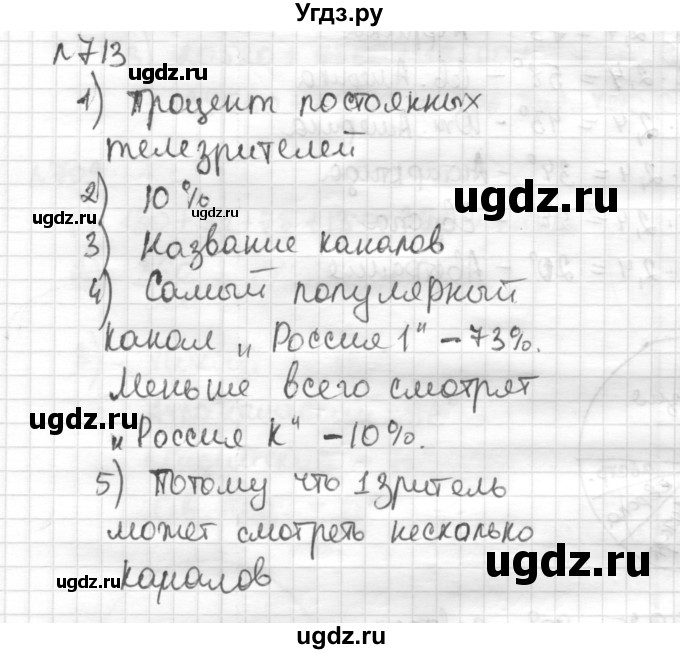 Угдз.ру
n713
ugdz.ru
ugdz.ru
1) Процент постоянных
телезрителей
ugdz.ru
2) 10%
ugdz.ru
ugdz.ru
ugdz.ru
3) Название каналов
4) Самый популярный
ugdz.ru
канал „Россия 1" – 73%.
ugdz.ru
Меньше всего смотрят
ugdz.ru
„Россия К" – 10%.
5) Потому что 1 зритель
может смотреть несколько
ugdz.ru
ugdz.ru
каналов
ugdz.ru